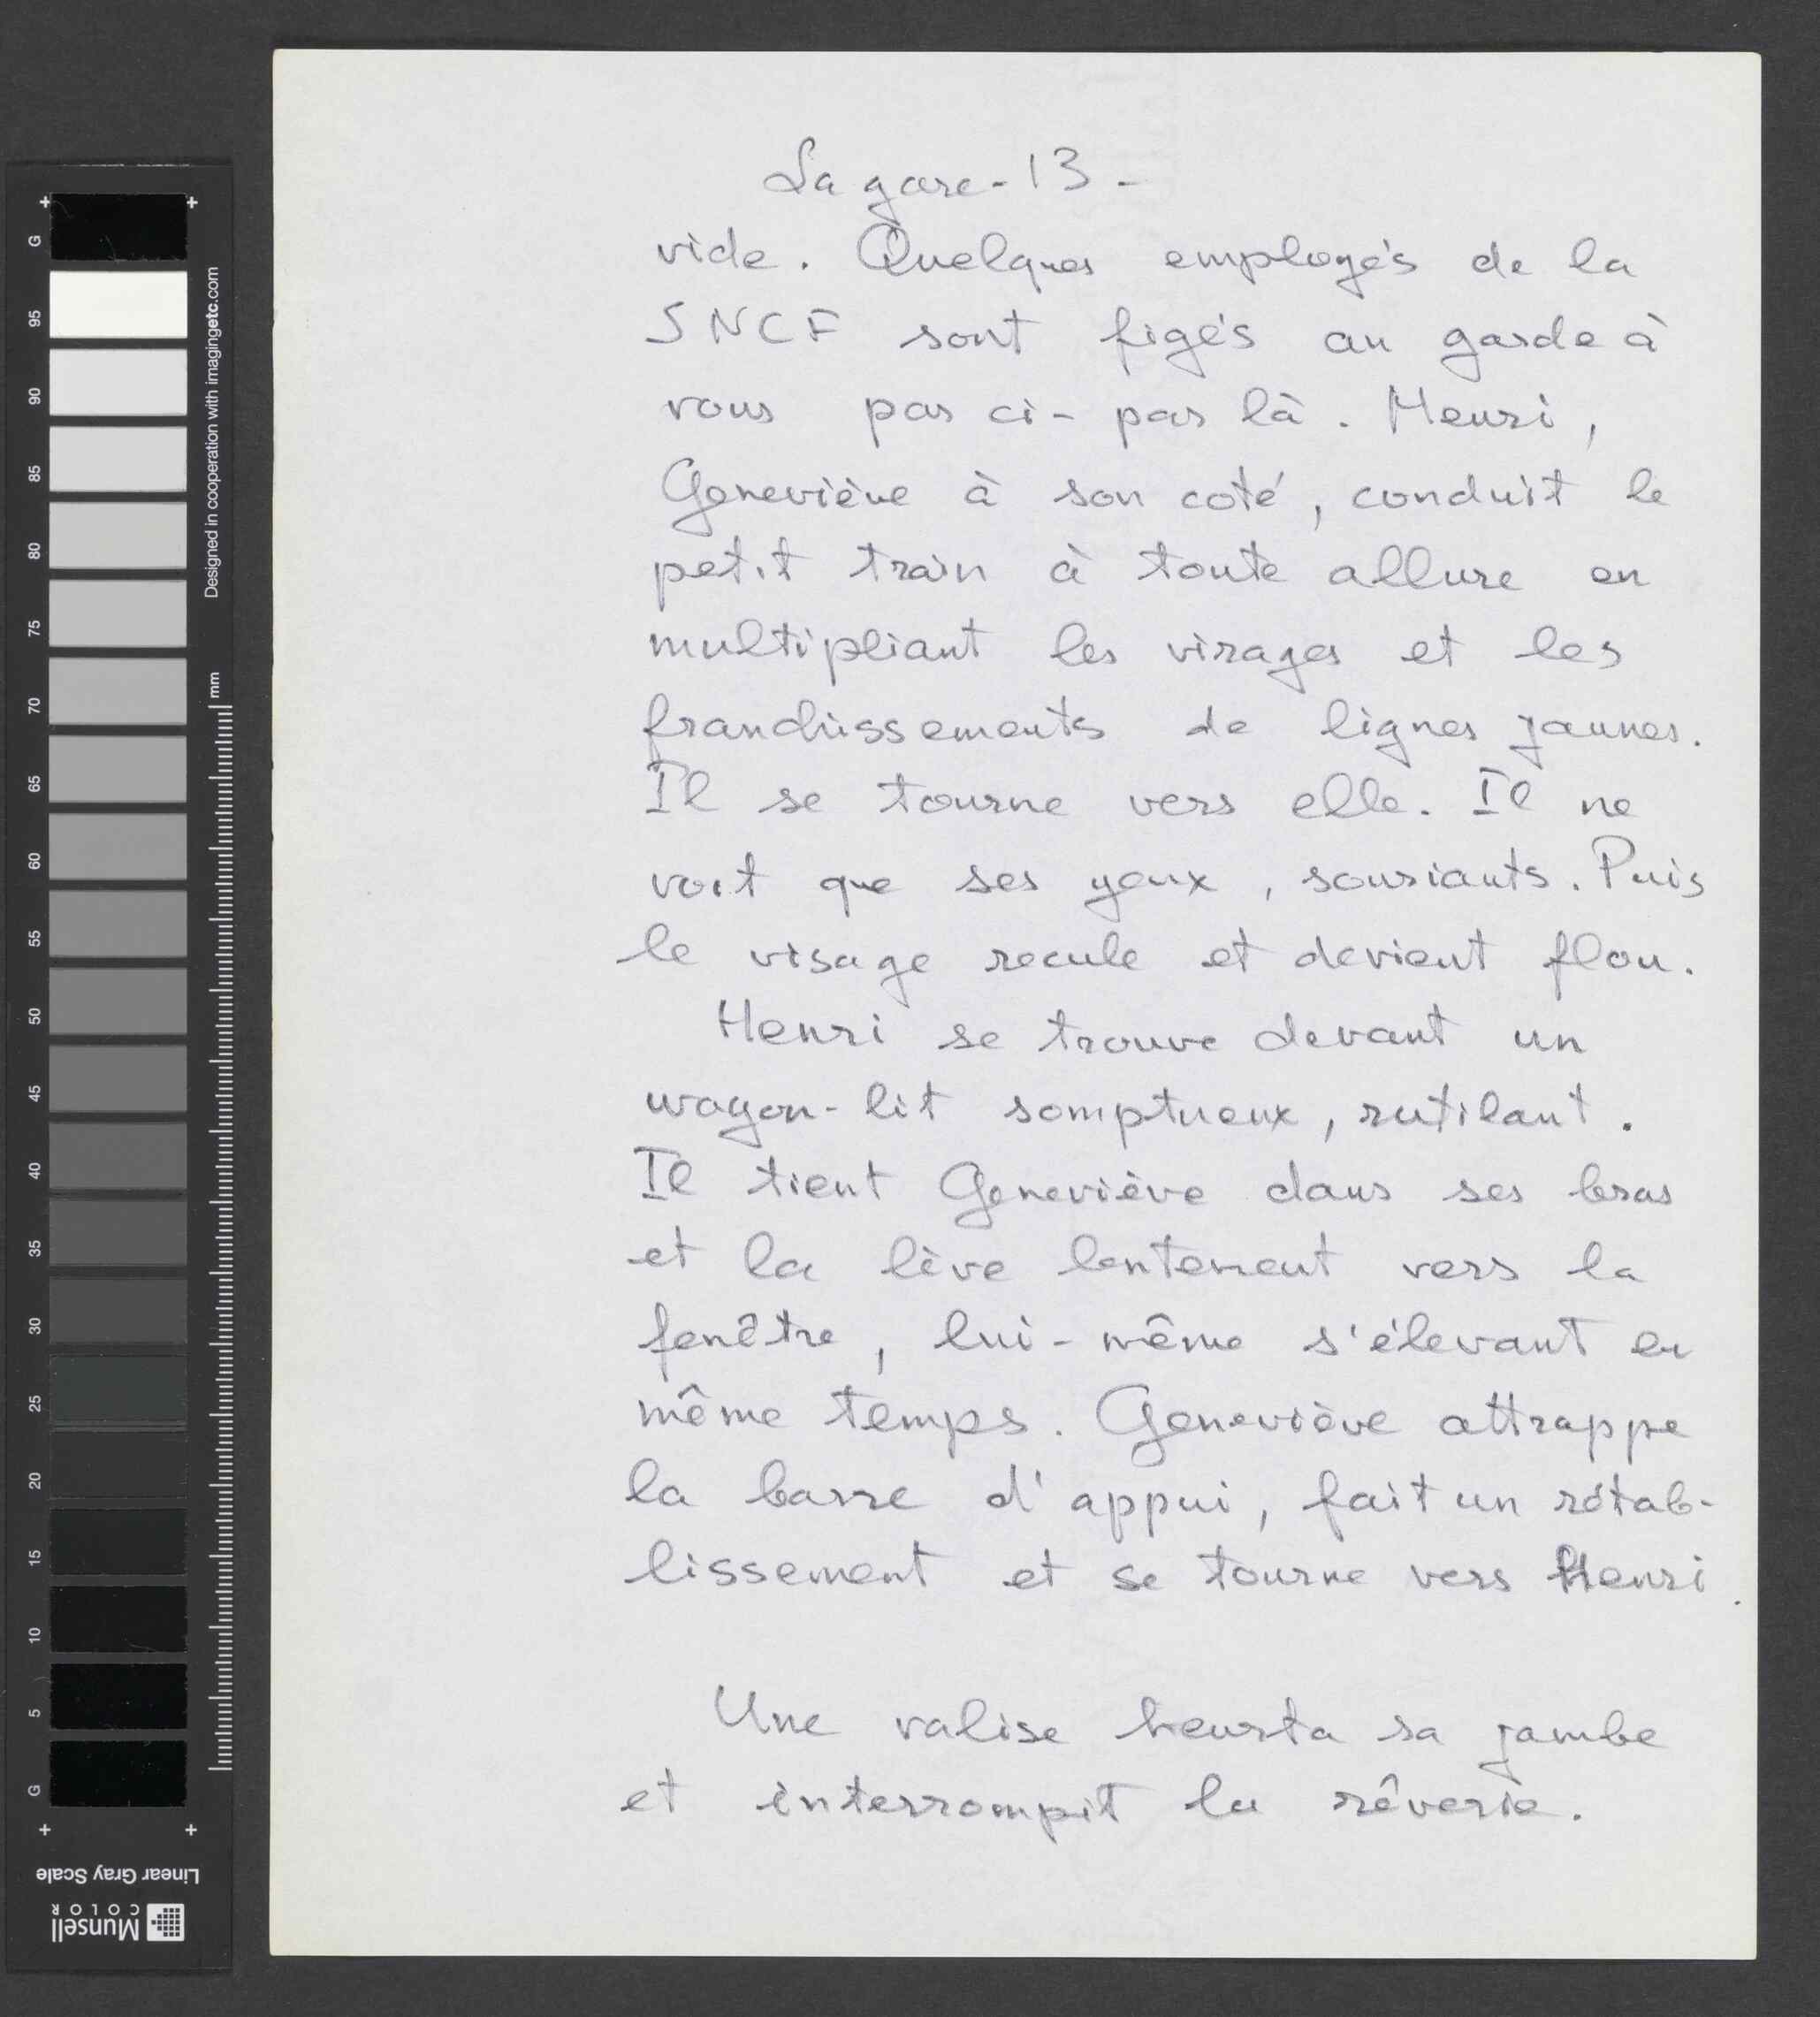 La gare - 13 -
vide. Quelques employés de la
SNCF sont figés au garde à
vous par ci - par là. Henri,
Geneviève à son coté, conduit le
petit train à toute allure en
multipliant les virages et les
franchissements de lignes jaunes.
Il se tourne vers elle. Il ne
voit que ses yeux, souriants. Puis
le visage recule et devient flou.
Henri se trouve devant un
wagon-lit somptueux, rutilant.
Il tient Geneviève dans ses bras
et la lève lentement vers la
fenêtre, lui-même s'élevant en
même temps. Geneviève attrappe
la barre d'appui, fait un rétab-
lissement et se tourne vers Henri.
Une valise heurta sa jambe
et interrompit la rêverie.
G 95 90 85 80 75 70 65 60 55 50 45 40 35 30 25 20 15 10 5 G
Designed in cooperation with imagingetc.com
mm
Linear Gray Scale
Munsell
COLOR